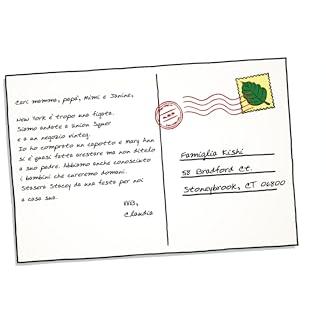 Cari mamma, papà, Mimi e Janine,
New York è tropo una figata.
Siamo andate a Union Squer
e a un negozio vinteg.
Io ho comprato un capotto e Mary Ann
si è quasi fatta arestare ma non ditelo
a suo padre. Abbiamo anche conosciuto
i bambini che cureremo domani.
Stasera Stacey da una festa per noi
a casa sua.
Claudia
Famiglia Kishi
58 Bradford Ct.
Stoneybrook, CT 06800